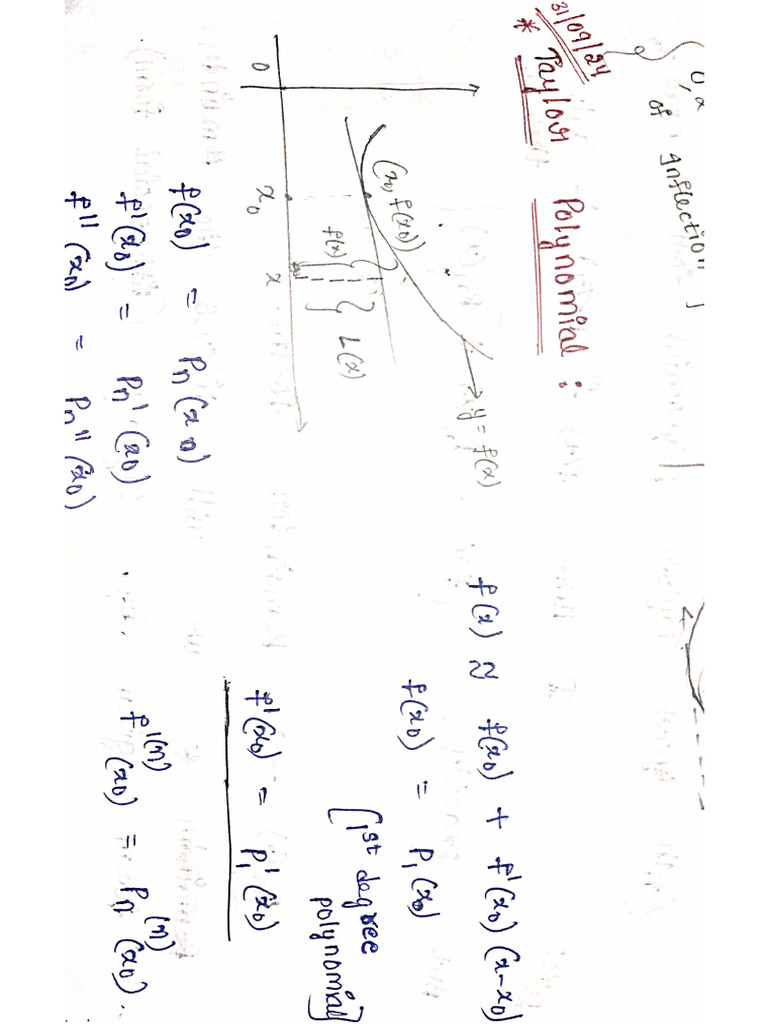 of inflection
31/09/24
* Taylor Polynomial :
y = f(x)
(x₀, f(x₀))
f(x)
L(x)
0
x₀
x
f(x) ≈ f(x₀) + f'(x₀) (x-x₀)
f(x₀) = P₁(x₀)
[1st degree
polynomial]
f'(x₀) = P₁'(x₀)
f(x₀) = Pₙ(x₀)
f'(x₀) = Pₙ'(x₀)
f''(x₀) = Pₙ''(x₀)
f'⁽ⁿ⁾(x₀) = Pₙ⁽ⁿ⁾(x₀).